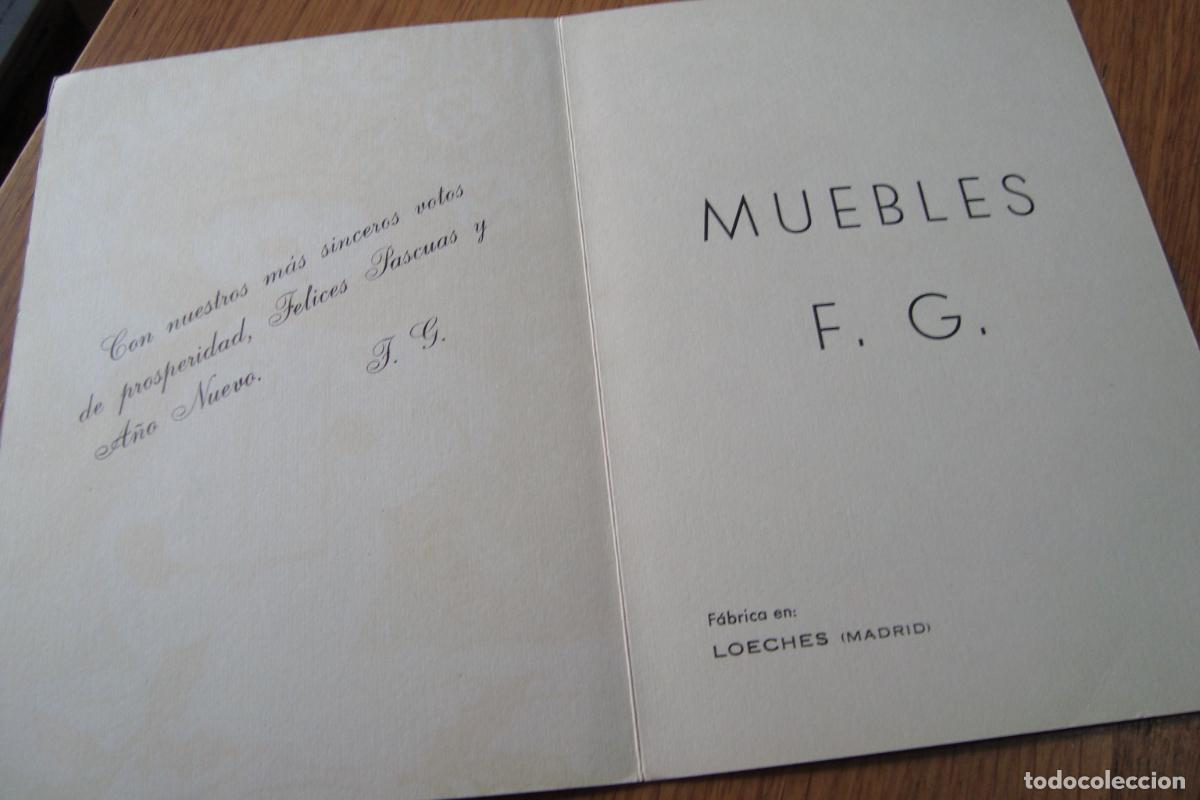 Con nuestros más sinceros votos
de prosperidad, Felices Pascuas y
Año Nuevo. F. G.
MUEBLES
F. G.
Fábrica en:
LOECHES (MADRID)
todocoleccion